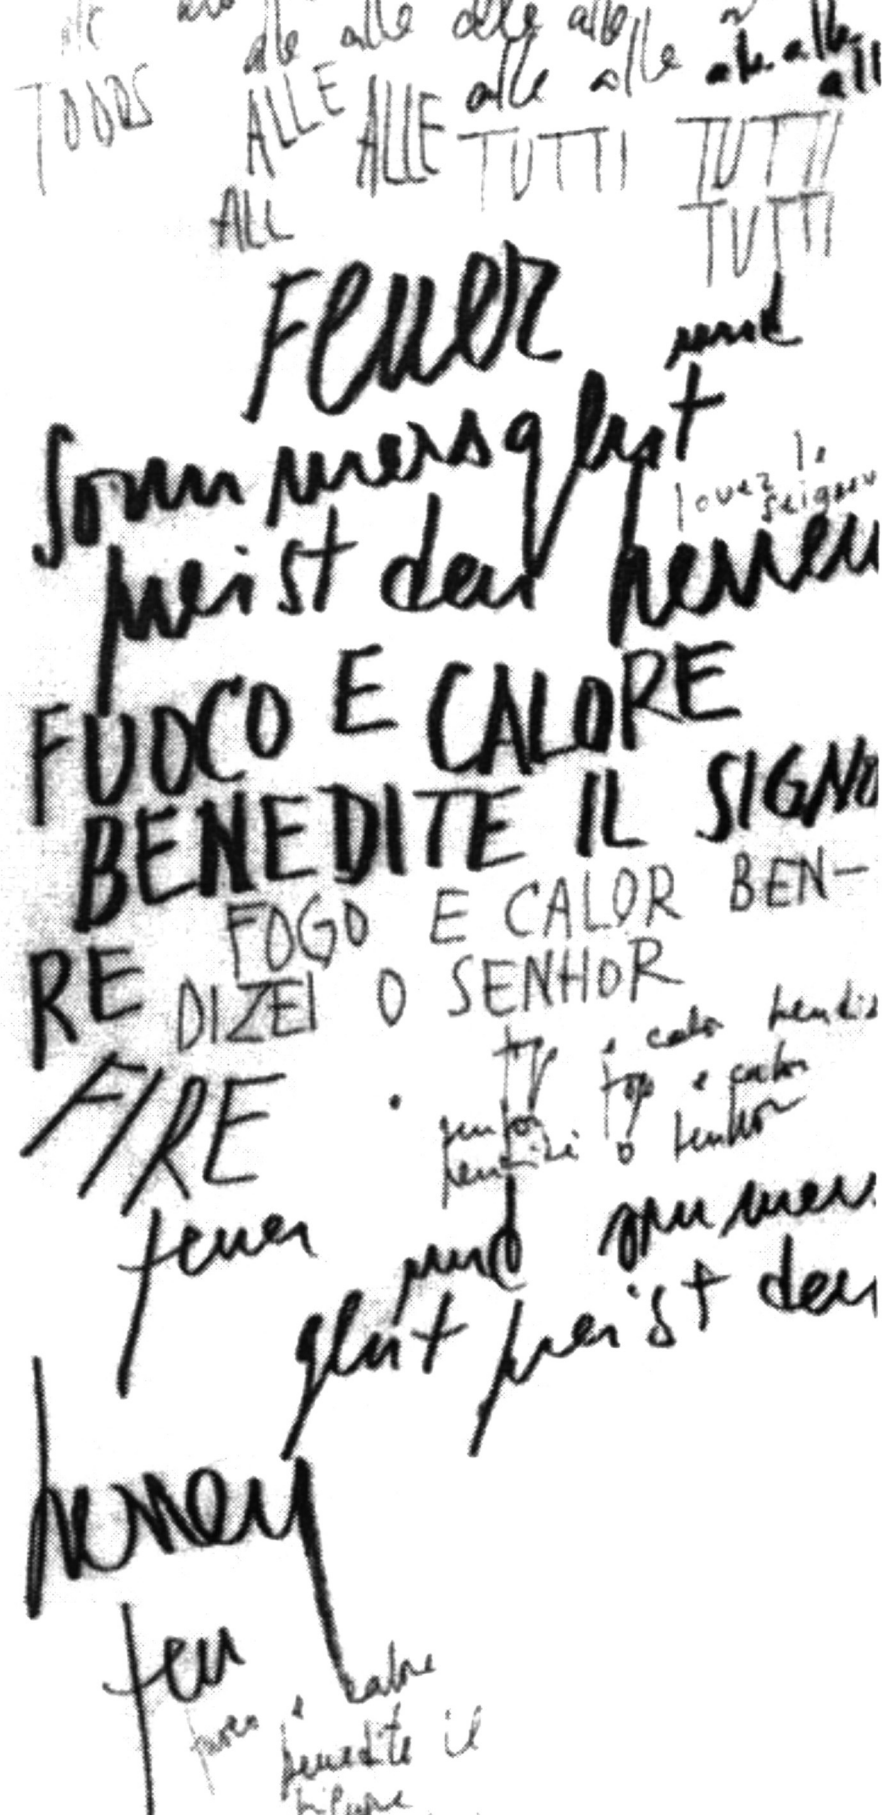 alle alle alle alle
TODOS ALLE ALLE alle alle alle alle
all
TUTTI TUTTI
ALL TUTTI
Feuer und
sommersglut
louez le
seigneu
preist den herren
FUOCO E CALORE
BENEDITE IL SIGNO
RE FOGO E CALOR BEN-
DIZEI O SENHOR
FIRE
fogo e calor bendiz
fogo e calor
bendizei o senhor
feuer und sommer
glut preist den
herren
feu
fuoco e calore
benedite il
signore